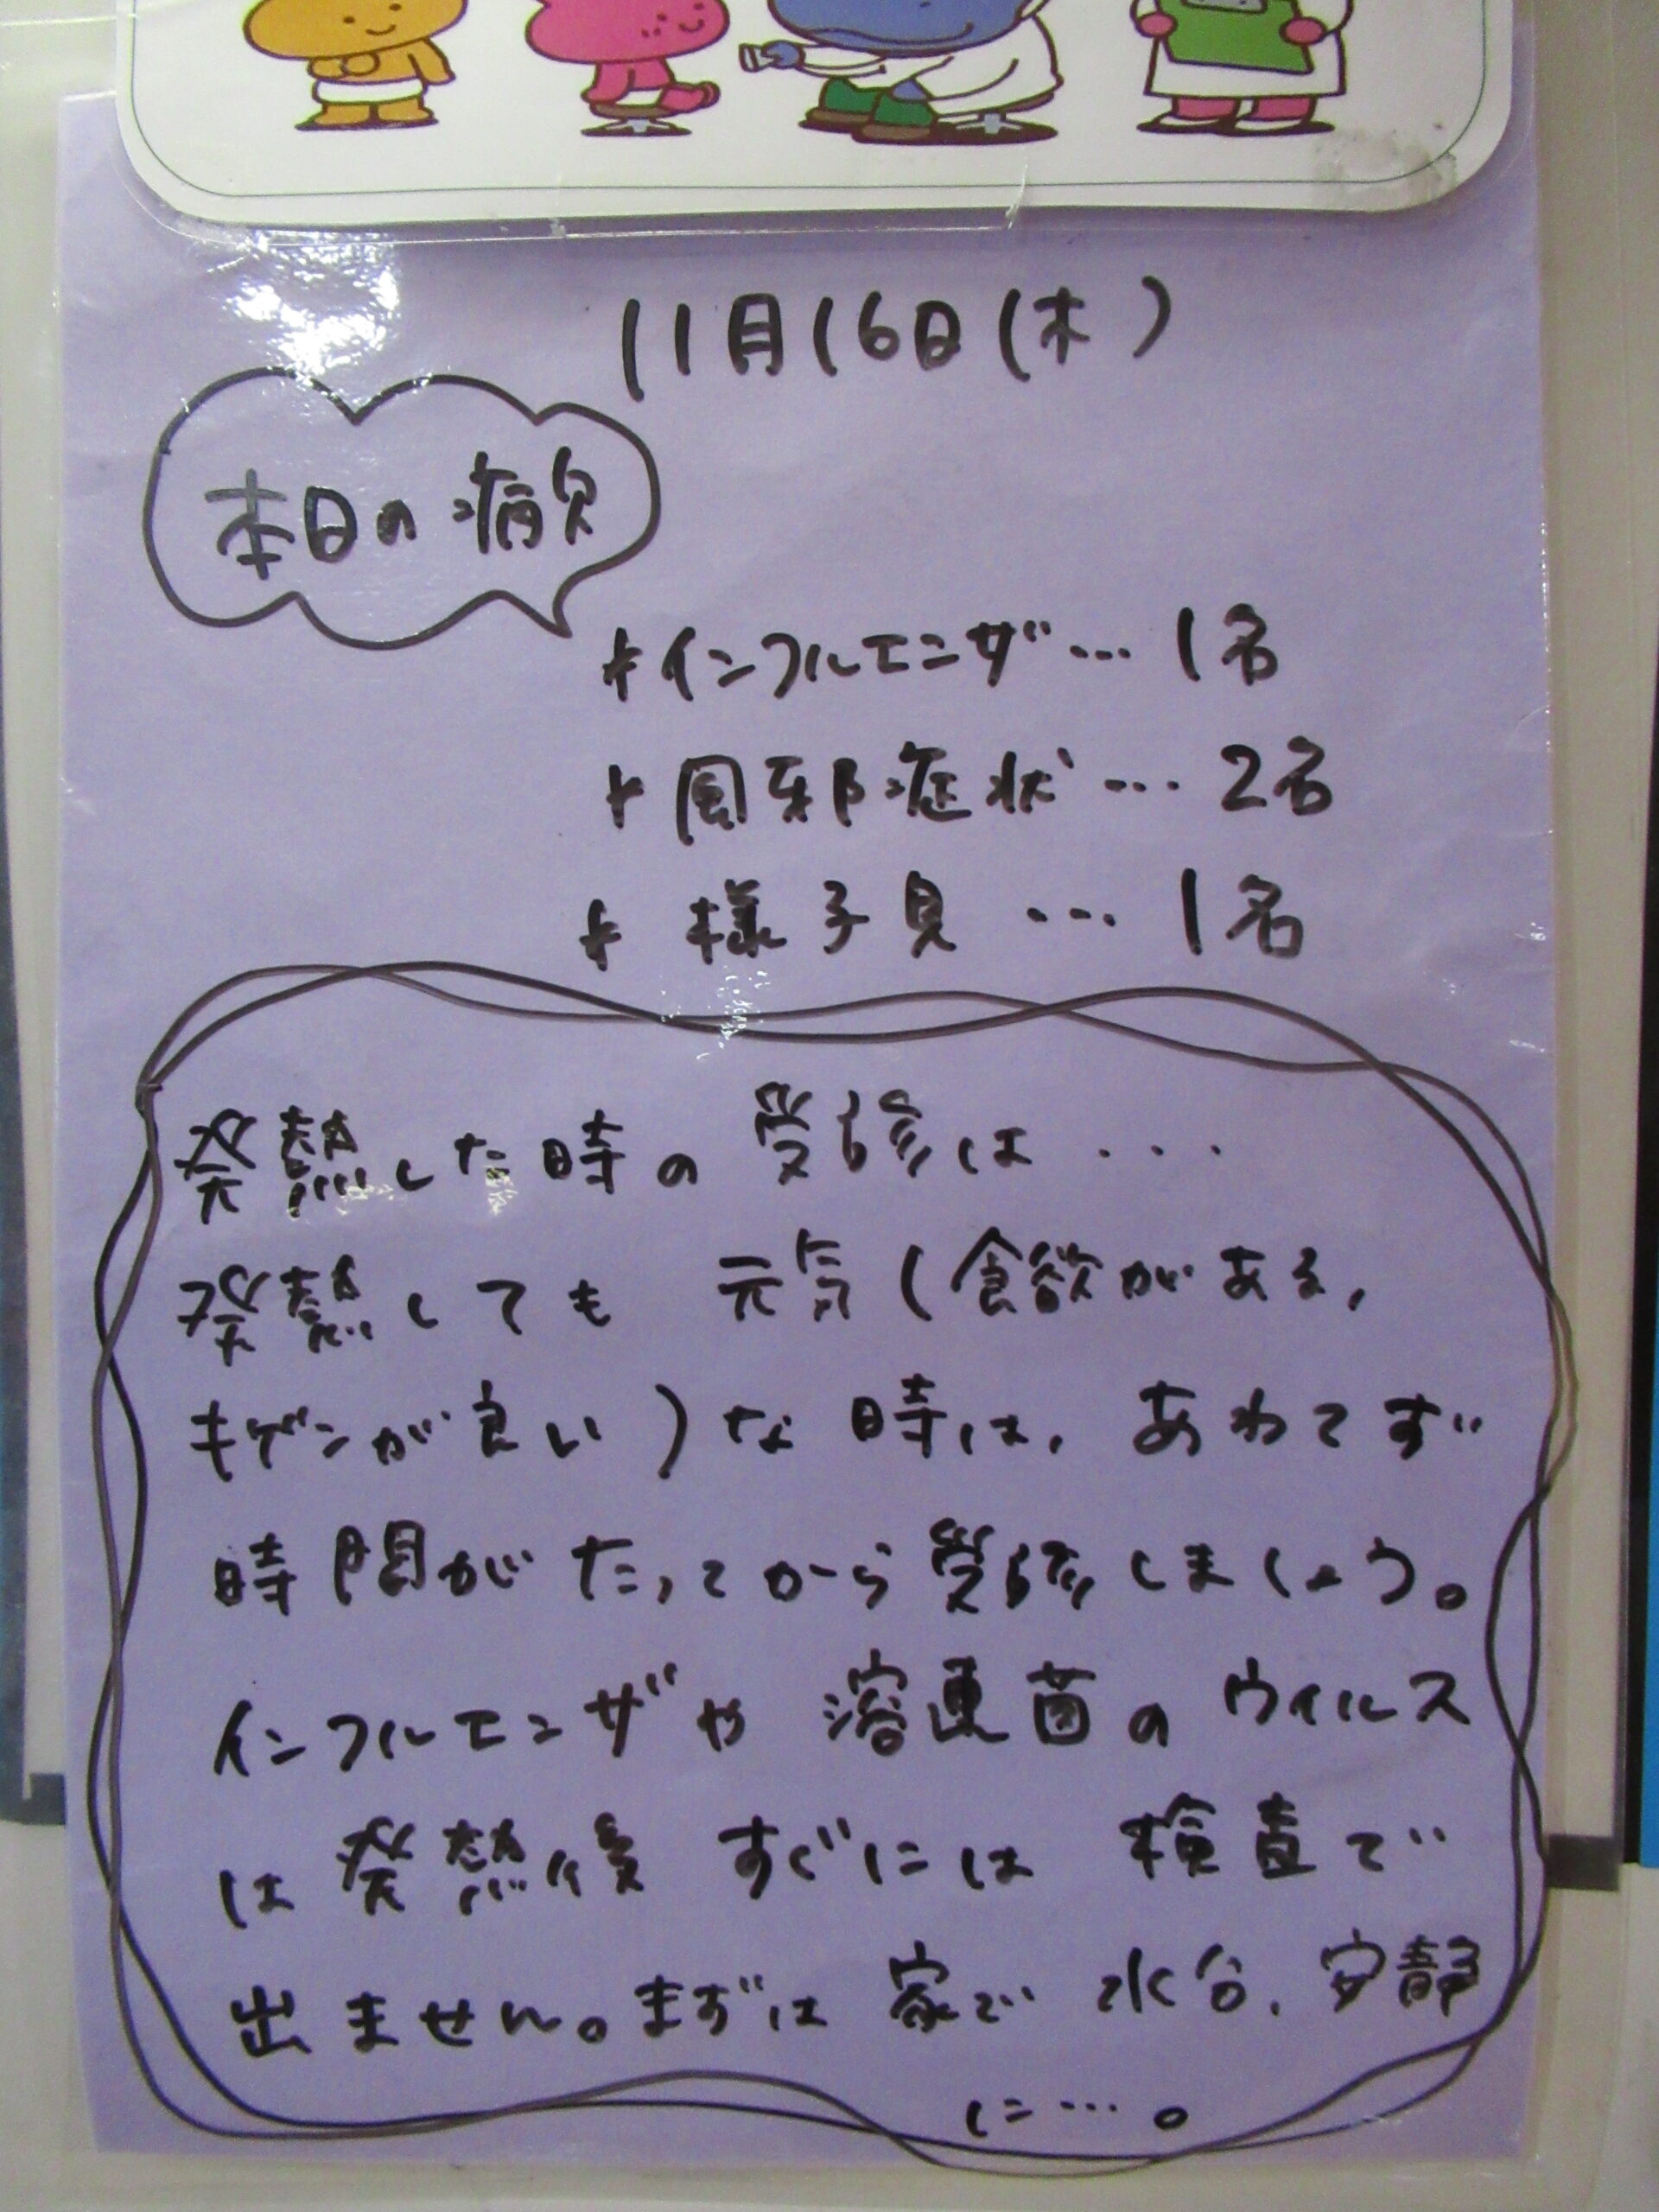 11月16日(木)
本日の病欠
*インフルエンザ… 1名
*風邪症状… 2名
*様子見 … 1名
発熱した時の受診は...
発熱しても 元気(食欲がある、
キゲンが良い)な時は、あわてず
時間がたってから受診しましょう。
インフルエンザや溶連菌のウィルス
は発熱後すぐには検査で
出ません。まずは家で水分、安静
に…。